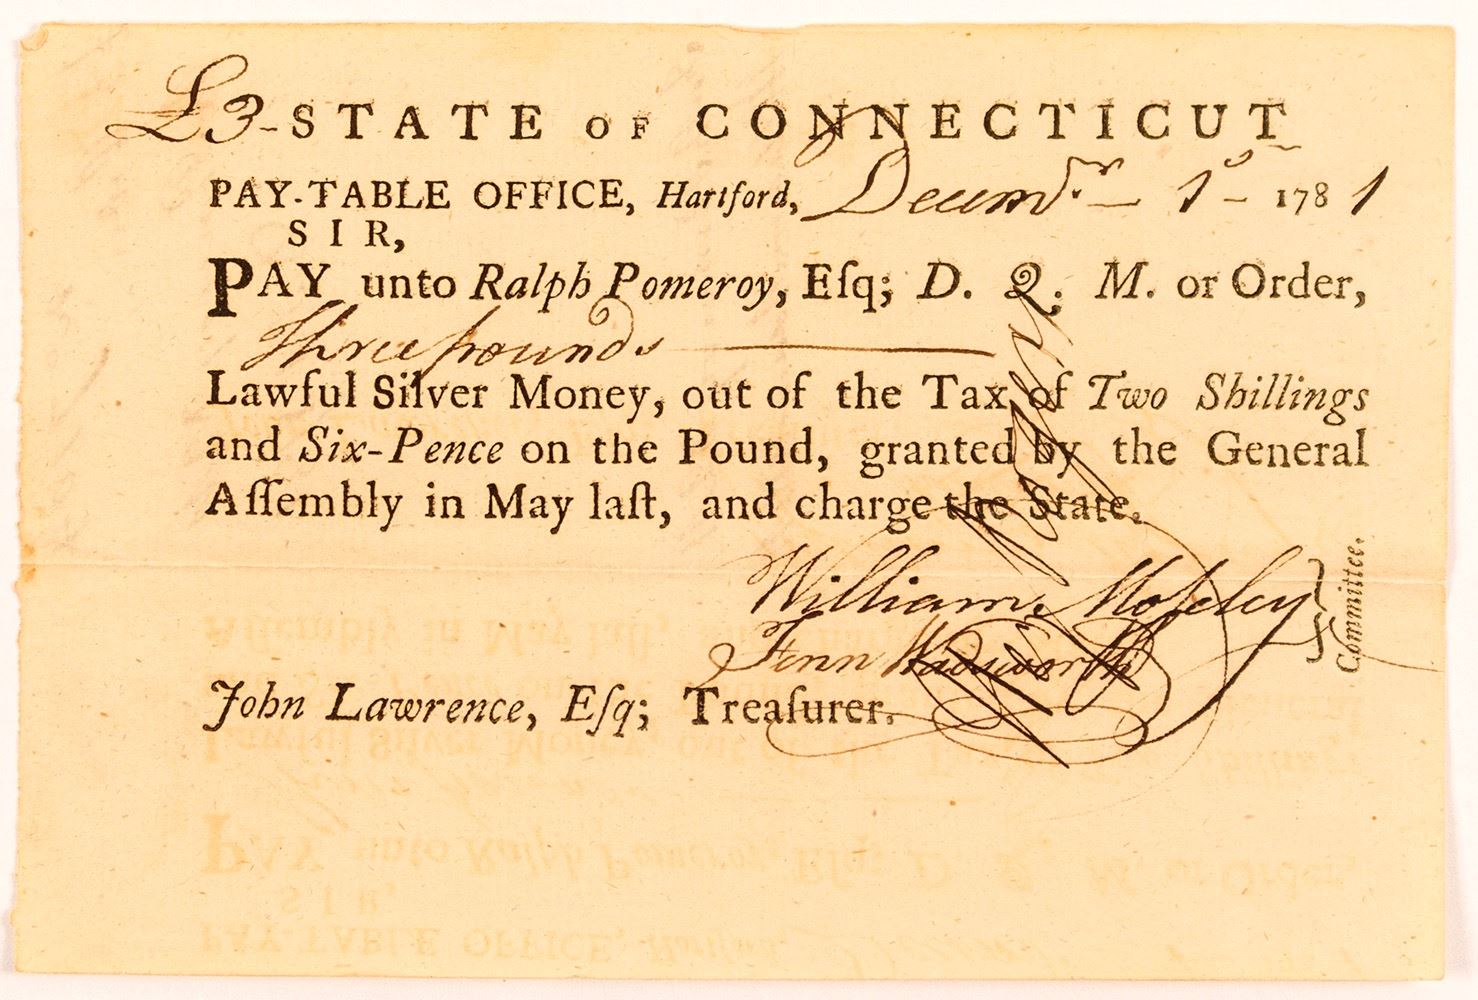 £3-STATE OF CONNECTICUT
PAY-TABLE OFFICE, Hartford, Decemr. 1st 1781
SIR,
PAY unto Ralph Pomeroy, Eſq; D. Q. M. or Order,
Three pounds
Lawful Silver Money, out of the Tax of Two Shillings
and Six-Pence on the Pound, granted by the General
Aſſembly in May laſt, and charge the State.
William Moſeley
Fenn Wadsworth
Committee.
John Lawrence, Eſq; Treaſurer.